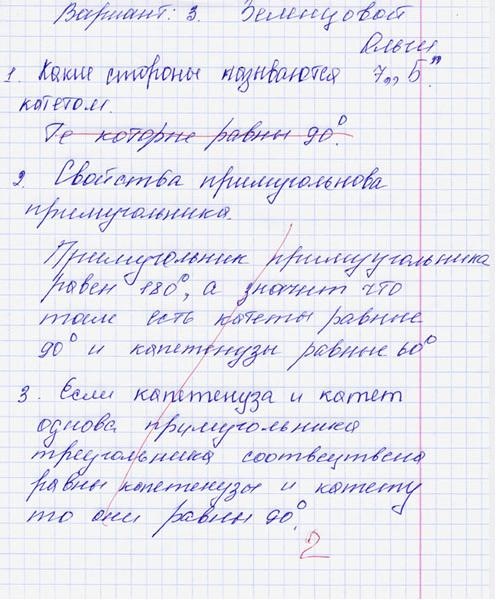 Вариант: 3. Зеленцовой
Ольги
1. Какие стороны называются 7 „Б".
катетом.
Те которые равны 90°.
2. Свойства примугольнова
примугольника.
Примугольник примуугольника
равен 180°, а значит что
там есть катеты равные
90° и капетенузы равные 60°
3. Если капетенуза и катет
однова примугольника
треугольника соотвеутвена
равны капетенузы и катету
то они равны 90°.
2